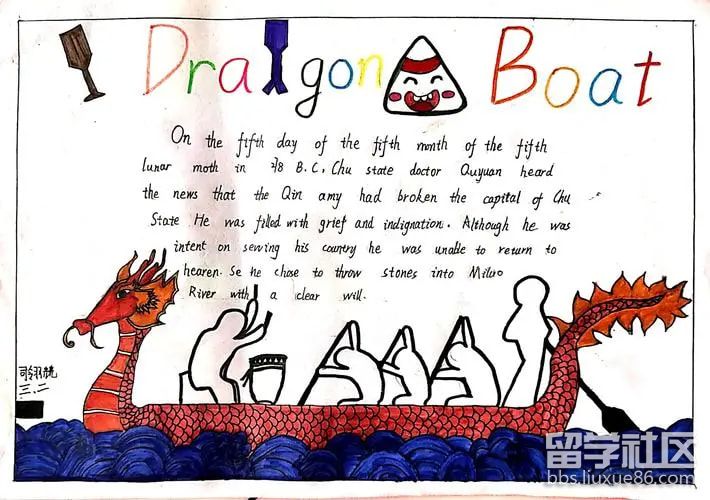 Dralgon Boat
On the fifth day of the fifth month of the fifth
lunar moth in 278 B.C. Chu state doctor Quyuan heard
the news that the Qin amy had broken the capital of Chu
State He was filled with grief and indignation. Although he was
intent on sewing his country he was unable to return to
hearen. Se he chose to throw stones into Miluo
River with a clear will.
三.二
留学社区
bbs.liuxue86.com